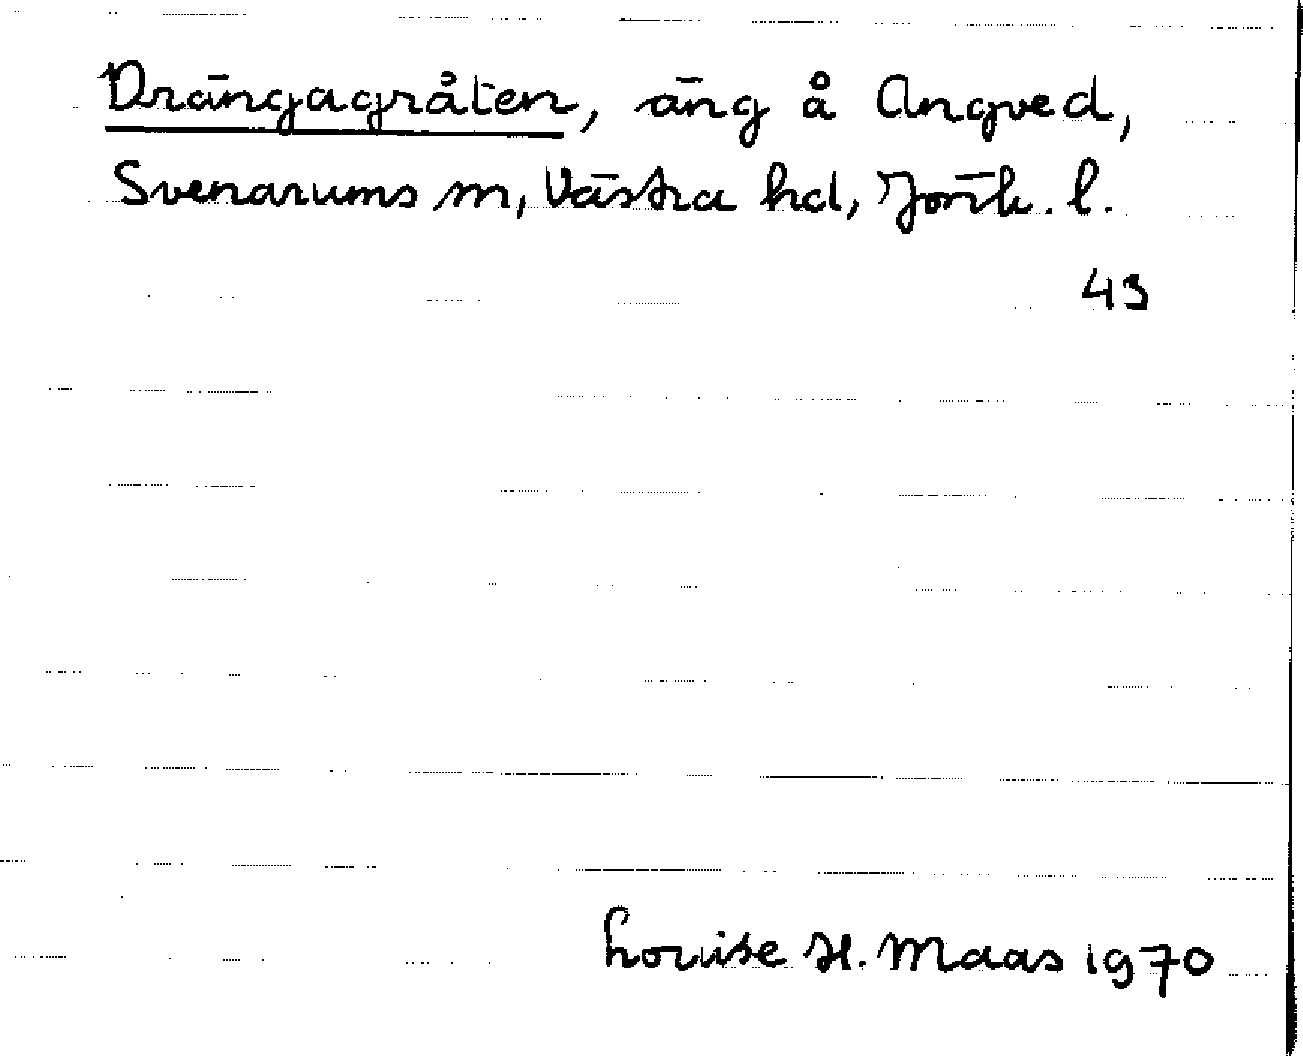 Drängagråten, äng å Angved,
Svenarums sn, Västra hd, Jönk. l.
43
Louise H. Maas 1970